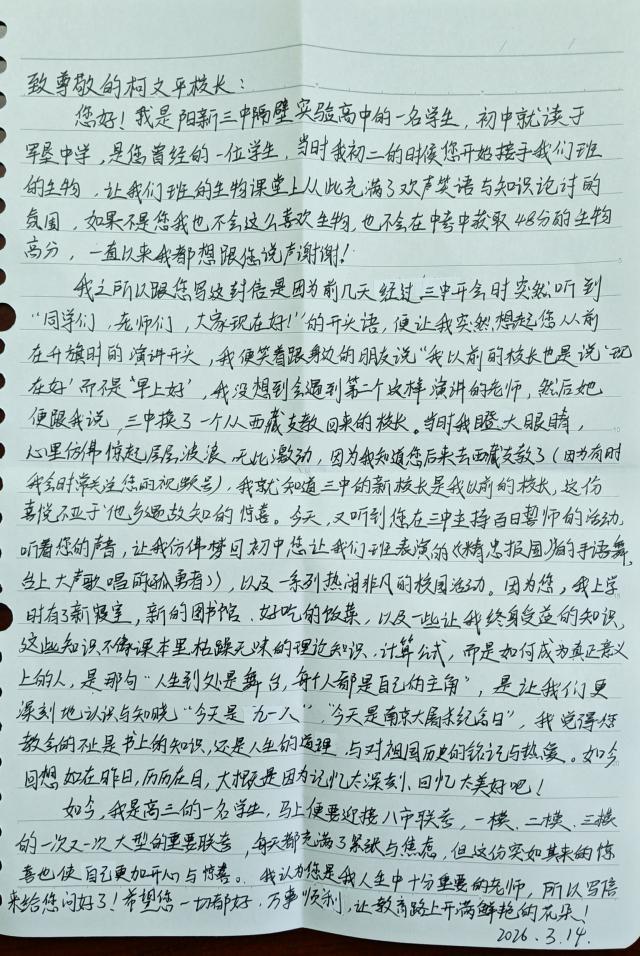 致尊敬的柯文平校长：
您好！我是阳新三中隔壁实验高中的一名学生，初中就读于
军垦中学，是您曾经的一位学生，当时我初二的时候您开始接手我们班
的生物，让我们班的生物课堂上从此充满了欢声笑语与知识论讨的
氛围，如果不是您我也不会这么喜欢生物，也不会在中考中获取48分的生物
高分，一直以来我都想跟您说声谢谢！
我之所以跟您写这封信是因为前几天经过三中开会时突然听到
“同学们，老师们，大家现在好！”的开头语，便让我突然想起您从前
在升旗时的演讲开头，我便笑着跟身边的朋友说“我以前的校长也是说‘现
在好’而不是‘早上好’，我没想到会遇到第二个这样演讲的老师，然后她
便跟我说，三中换了一个从西藏支教回来的校长。当时我瞪大眼睛，
心里仿佛惊起层层波浪，无比激动，因为我知道您后来去西藏支教了（因为有时
我会时常关注您的视频号），我就知道三中的新校长是我以前的校长，这份
喜悦不亚于他乡遇故知的惊喜。今天，又听到您在三中主持百日誓师的活动，
听着您的声音，让我仿佛梦回初中您让我们班表演的《精忠报国》的手语舞，
台上大声歌唱的《孤勇者》），以及一系列热闹非凡的校园活动。因为您，我上学
时有了新寝室，新的图书馆、好吃的饭菜，以及一些让我终身受益的知识，
这些知识不像课本里枯躁无味的理论知识、计算公式，而是如何成为真正意义
上的人，是那句“人生到处是舞台，每个人都是自己的主角”，是让我们更
深刻地认识与知晓“今天是‘九一八’”，“今天是南京大屠杀纪念日”，我觉得您
教会的不止是书上的知识，还是人生的道理，与对祖国历史的铭记与热爱。如今
回想如在昨日，历历在目，大概是因为记忆太深刻、回忆太美好吧！
如今，我是高三的一名学生，马上便要迎接八市联考，一模、二模、三模
的一次又一次大型的重要联考，每天都充满了紧张与焦虑，但这份突如其来的惊
喜也使自己更加开心与惊喜。我认为您是我人生中十分重要的老师，所以写信
来给您问好了！希望您一切都好，万事顺利，让教育路上开满鲜艳的花朵！
2026.3.14.